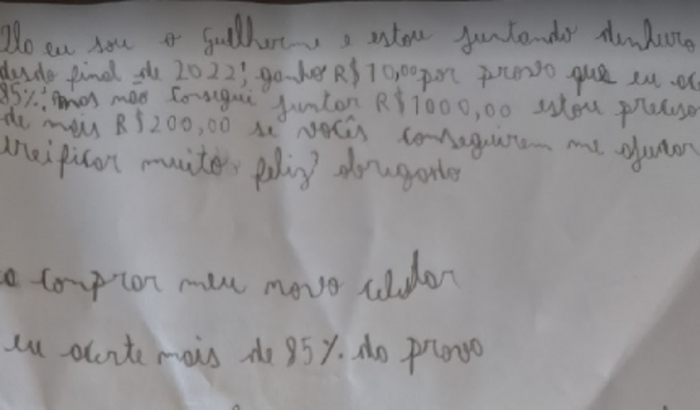 Olo eu sou o Guilherme e estou juntando dinheiro
desdo final de 2022; ganho R$10,00 por prova que eu ac
85%; mas não consegui juntar R$1000,00 estou preciso
de mais R$200,00 se vocês conseguirem me ajudar
ireificar muito feliz obrigado
a comprar meu novo celular
eu acerte mais de 85% da prova